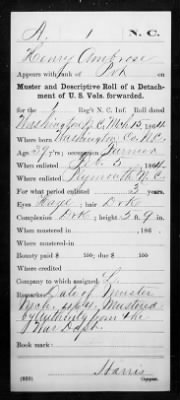 A. 1 N. C.
Henry Ambrose
Appears with rank of Pvt on
Muster and Descriptive Roll of a Detach-
ment of U. S. Vols. forwarded.
for the 1 Reg't N. C. Inf. Roll dated
Washington N.C. Mch 15, 1864
Where born Washington Co. N.C.
Age 39 y'rs; occupation Farmer
When enlisted 5, 1864
Where enlisted Plymouth N.C.
For what period enlisted 3 years.
Eyes Haze; hair Drk
Complexion Drk; height 5 ft. 9 in.
When mustered in , 186 .
Where mustered in
Bounty paid $ 100; due $ 100
Where credited
Company to which assigned L.
Remarks: Date of Muster
Mustered
by authority from the
War Dept.
Book mark:
Harris
Copyist.